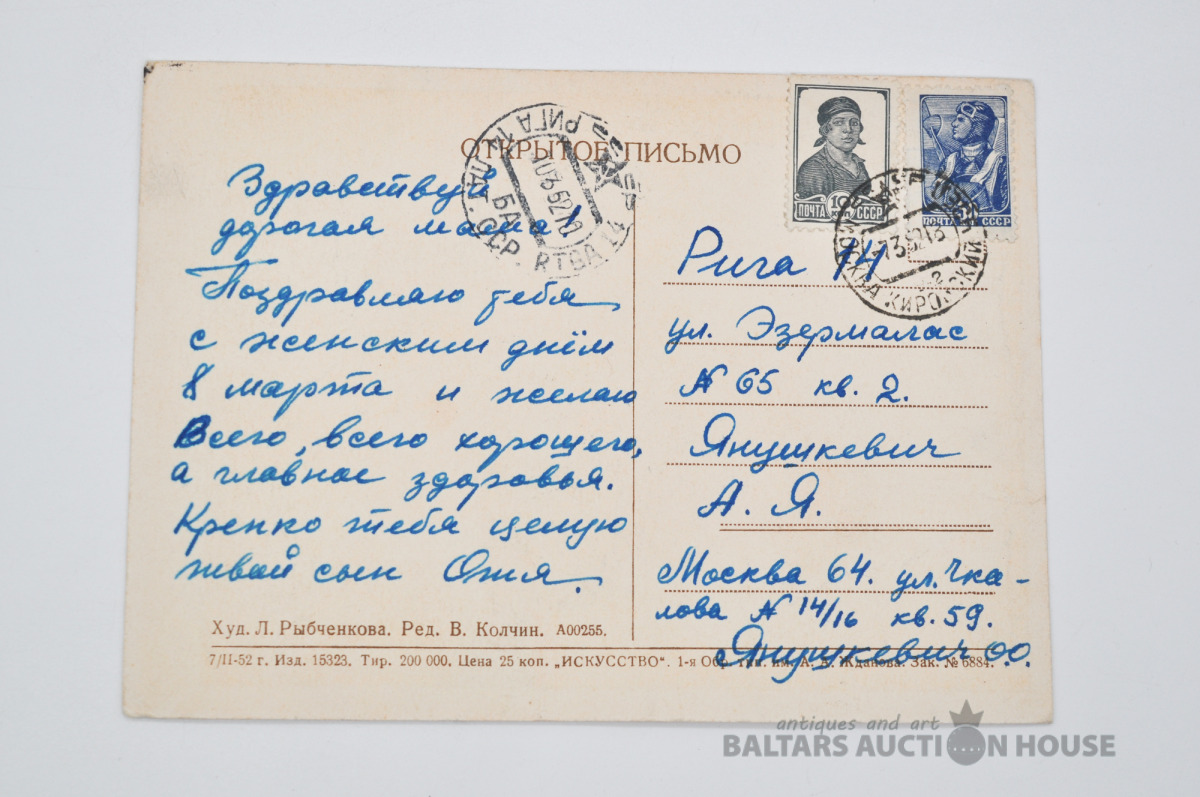 ОТКРЫТОЕ ПИСЬМО
Здравствуй
дорогая мама!
Поздравляю тебя
с женским днём
8 марта и желаю
Всего, всего хорошего,
а главное здоровья.
Крепко тебя целую
твой сын Оля
Худ. Л. Рыбченкова. Ред. В. Колчин. А00255.
7/II-52 г. Изд. 15323. Тир. 200 000. Цена 25 коп. „ИСКУССТВО“. 1-я тип. им. А. А. Жданова. Зак. № 6884.
ПОЧТА СССР
ПОЧТА СССР
РИГА 14
RIGA 14
КИРОВСКИЙ
Рига 14
ул. Эзермалас
№ 65 кв. 2.
Янушкевич
А. Я.
Москва 64. ул. Чка-
лова № 14/16 кв. 59.
Янушкевич О.О.
antiques and art
BALTARS AUCTION HOUSE